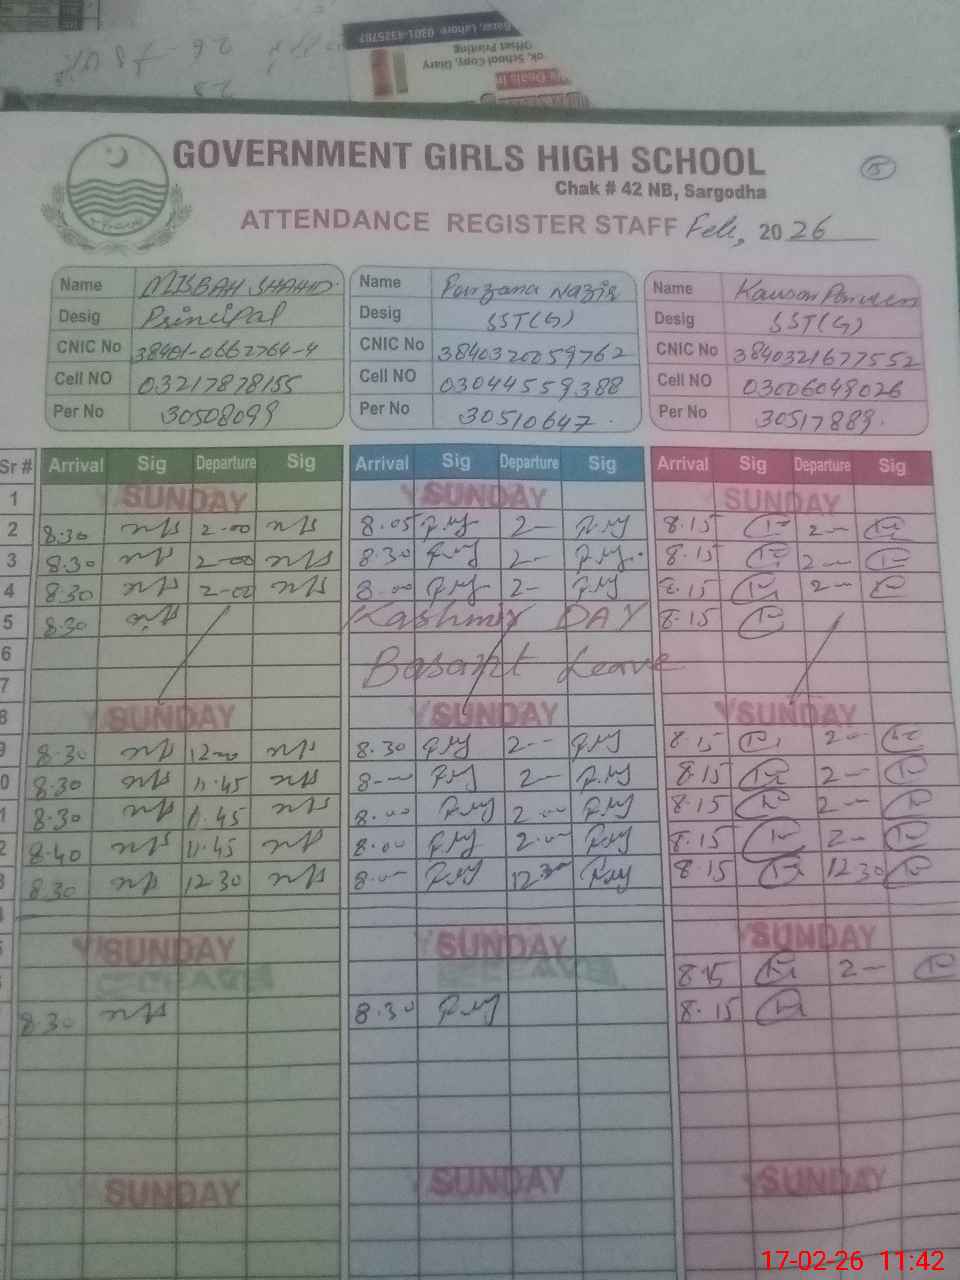 GOVERNMENT GIRLS HIGH SCHOOL
Chak # 42 NB, Sargodha
15
ATTENDANCE REGISTER STAFF Feb, 2026
Name MISBAH SHAHID Name Farzana Nazir Name Kausar Parveen
Desig Principal Desig SST(G) Desig SST(G)
CNIC No 38401-0662764-4 CNIC No 3840320059762 CNIC No 3840321677552
Cell NO 03217878155 Cell NO 03044559388 Cell NO 03006049026
Per No 30508099 Per No 30510647 Per No 30517889
Sr # Arrival Sig Departure Sig Arrival Sig Departure Sig Arrival Sig Departure Sig
1 SUNDAY SUNDAY SUNDAY
2 8.30 2-00 8.05 2- 8.15 2-
3 8.30 2-00 8.30 2- 8.15 2-
4 8.30 2-00 8.00 2- 8.15 2-
5 8.30 Kashmir DAY 8.15
6 Basant Leave
7
8 SUNDAY SUNDAY SUNDAY
9 8.30 12-00 8.30 2- 8.15 2-
0 8.30 11.45 8- 2- 8.15 2-
1 8.30 11.45 8.00 2.00 8.15 2-
2 8.40 11.45 8.00 2.00 8.15 2-
3 8.30 12 30 8.00 12 30 8.15 12 30
SUNDAY SUNDAY SUNDAY
8.15 2-
8.30 8.30 8.15
SUNDAY SUNDAY SUNDAY
17-02-26 11:42